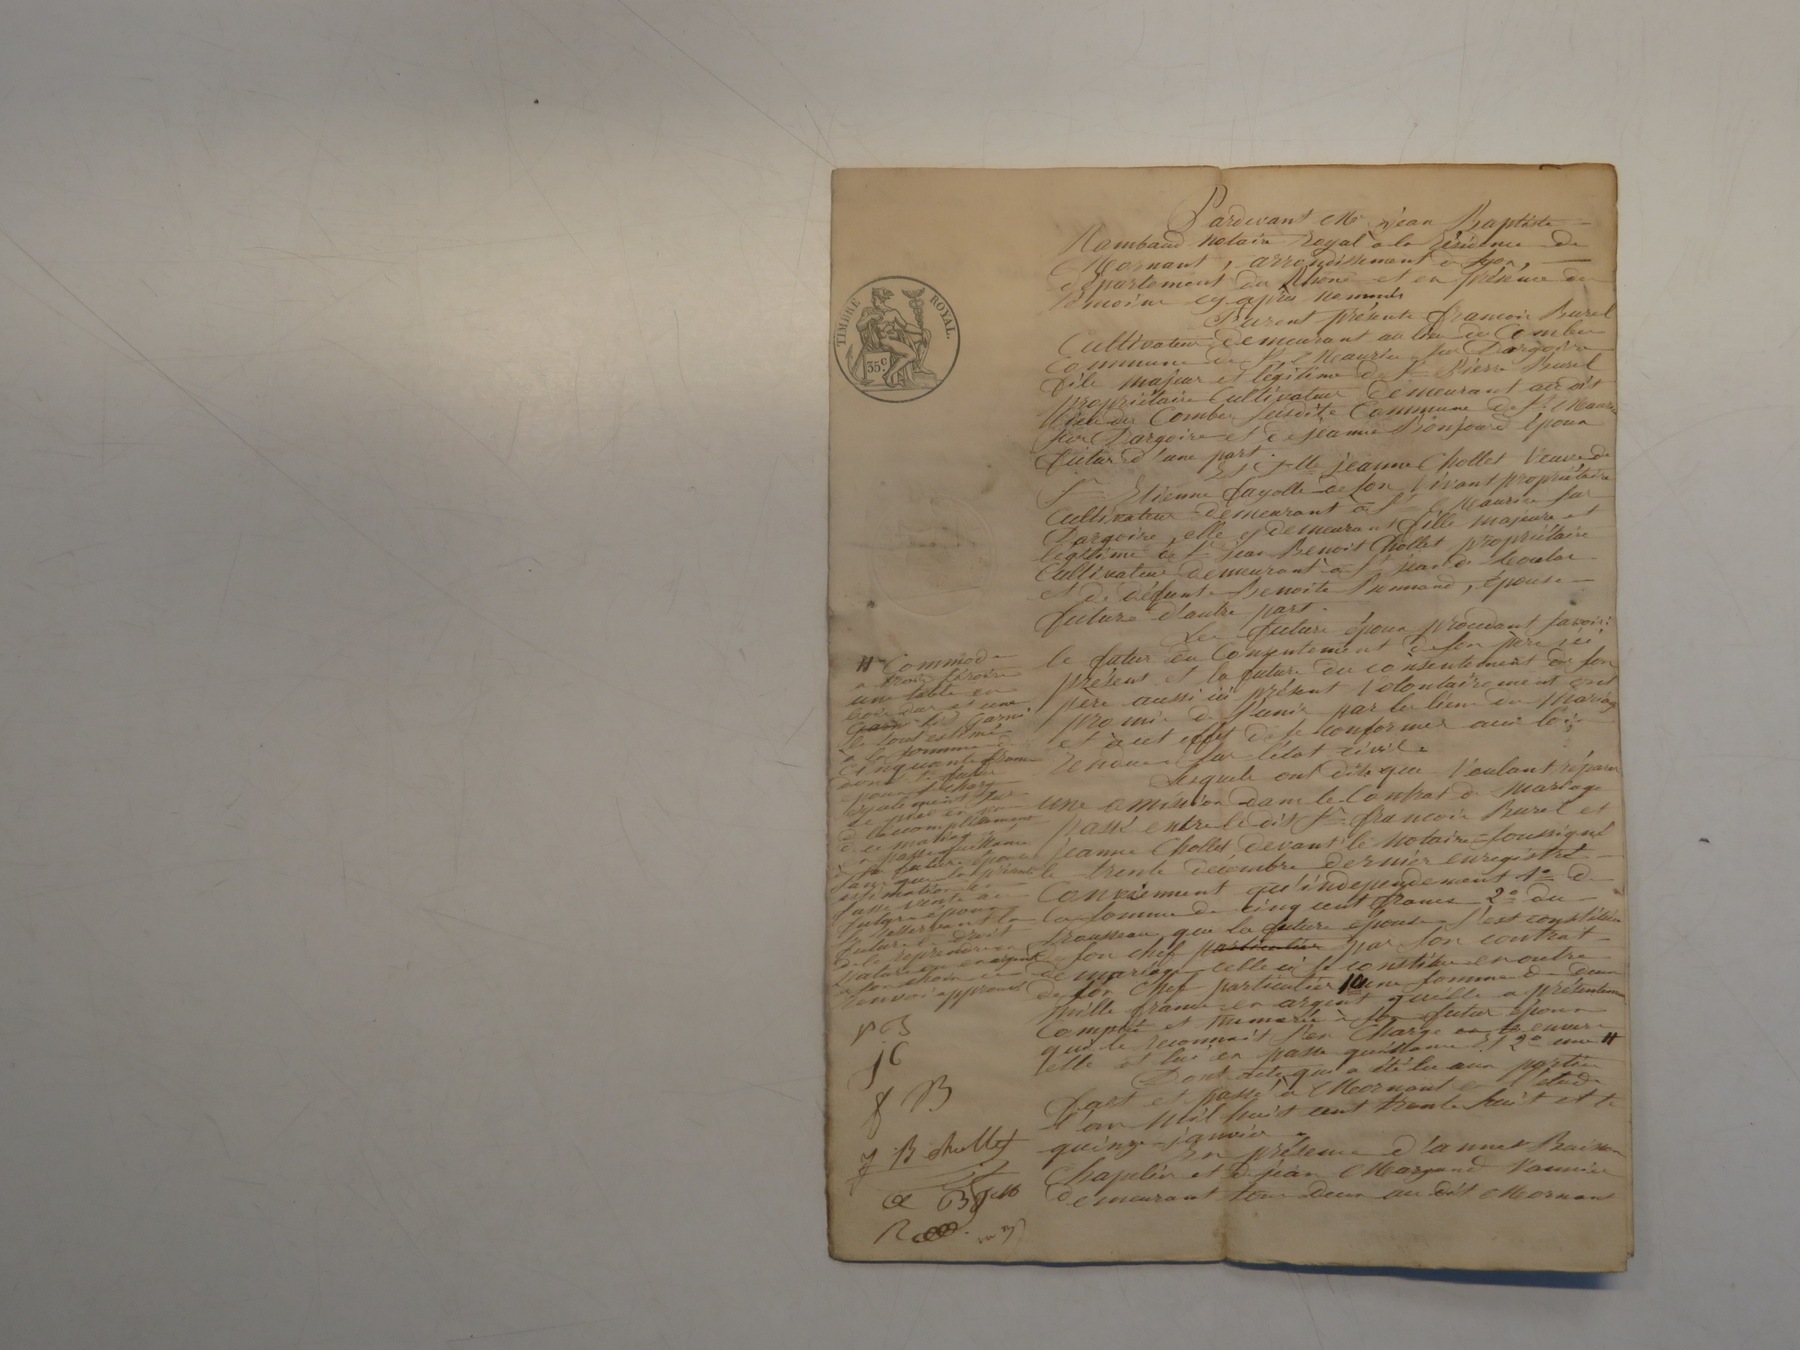 TIMBRE ROYAL.
35 c
Pardevant Me jean Baptiste
Rambaud notaire Royal à la résidence de
Mornant, arrondissement de Lyon,
département du Rhône et en présence des
témoins cy après nommés
Furent présents françois Burel
Cultivateur demeurant au lieu du Combe
Commune de St Maurice sur Dargoire
fils majeur et légitime de Sr Pierre Burel
propriétaire Cultivateur demeurant au dit
lieu du Combe susdite Commune de St Maurice
sur Dargoire et de jeanne Bonjour époux
futur d'une part.
Et jeanne Chollet Veuve de
Sr Etienne fayolle de son vivant propriétaire
Cultivateur demeurant à St Maurice sur
Dargoire, elle y demeurant fille majeure et
légitime de Sr jean Benoit Chollet propriétaire
Cultivateur demeurant à St jean de Toulas
et de défunte Benoite, épouse
future d'autre part.
Les futurs époux procédant savoir:
le futur du Consentement de son père ici
présent et la future du consentement de son
père aussi ici présent volontairement ont
promis de s'unir par les liens du Mariage
et à cet effet de se conformer aux lois
rendues sur l'état civil.
Lesquels ont dit que voulant réparer
une omission dans le Contrat de Mariage
passé entre le dit Sr françois Burel et
jeanne Chollet devant le Notaire soussigné
le trente décembre dernier enregistré
Conviennent qu'indépendement 1° de
la somme de cinq cent francs 2° du
trousseau que la future épouse s'est constituée
de son chef particulier par son contrat
de mariage celle ci se constitue en outre
de son chef particulier 1° une somme de deux
mille francs en argent qu'elle a présentement
compté et numéré à son futur époux
qui le reconnait s'en Charge envers
elle et lui en passe quittance et 2° une #
Dont acte qui a été lu aux parties
fait et passé à Mornant en l'étude
l'an Mil huit cent trente huit et le
quinze janvier.
En présence d'annet
Chaplin et de jean Margand
demeurant tous deux au dit Mornant
# Commode
a trois tiroirs
une table en
bois dur et une
Garni
le tout estimé
à la somme de
Cinquante francs
dont le futur
époux se charge
également sur
de l'accomplissement
de ce mariage
en passe quittance
à la future épouse
sans que la présente
estimation
fasse vente au
futur époux
se réservant la
future le droit
de le reprendre en
nature ou en argent
à son choix
renvoi approuvé
PB
jC
f B
j B chollet